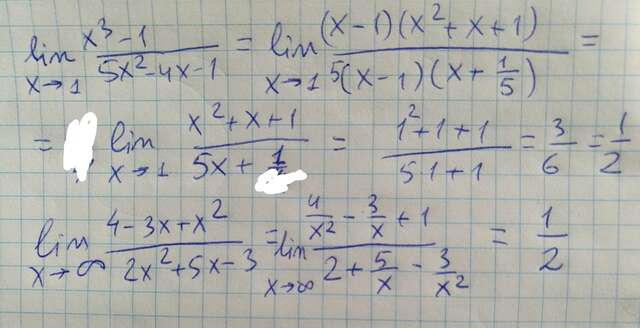 lim x→1 (x³-1)/(5x²-4x-1) = lim x→1 ((x-1)(x²+x+1))/(5(x-1)(x+1/5)) =
= lim x→1 (x²+x+1)/(5x+1) = (1²+1+1)/(5·1+1) = 3/6 = 1/2
lim x→∞ (4-3x+x²)/(2x²+5x-3) = lim x→∞ (4/x²-3/x+1)/(2+5/x-3/x²) = 1/2